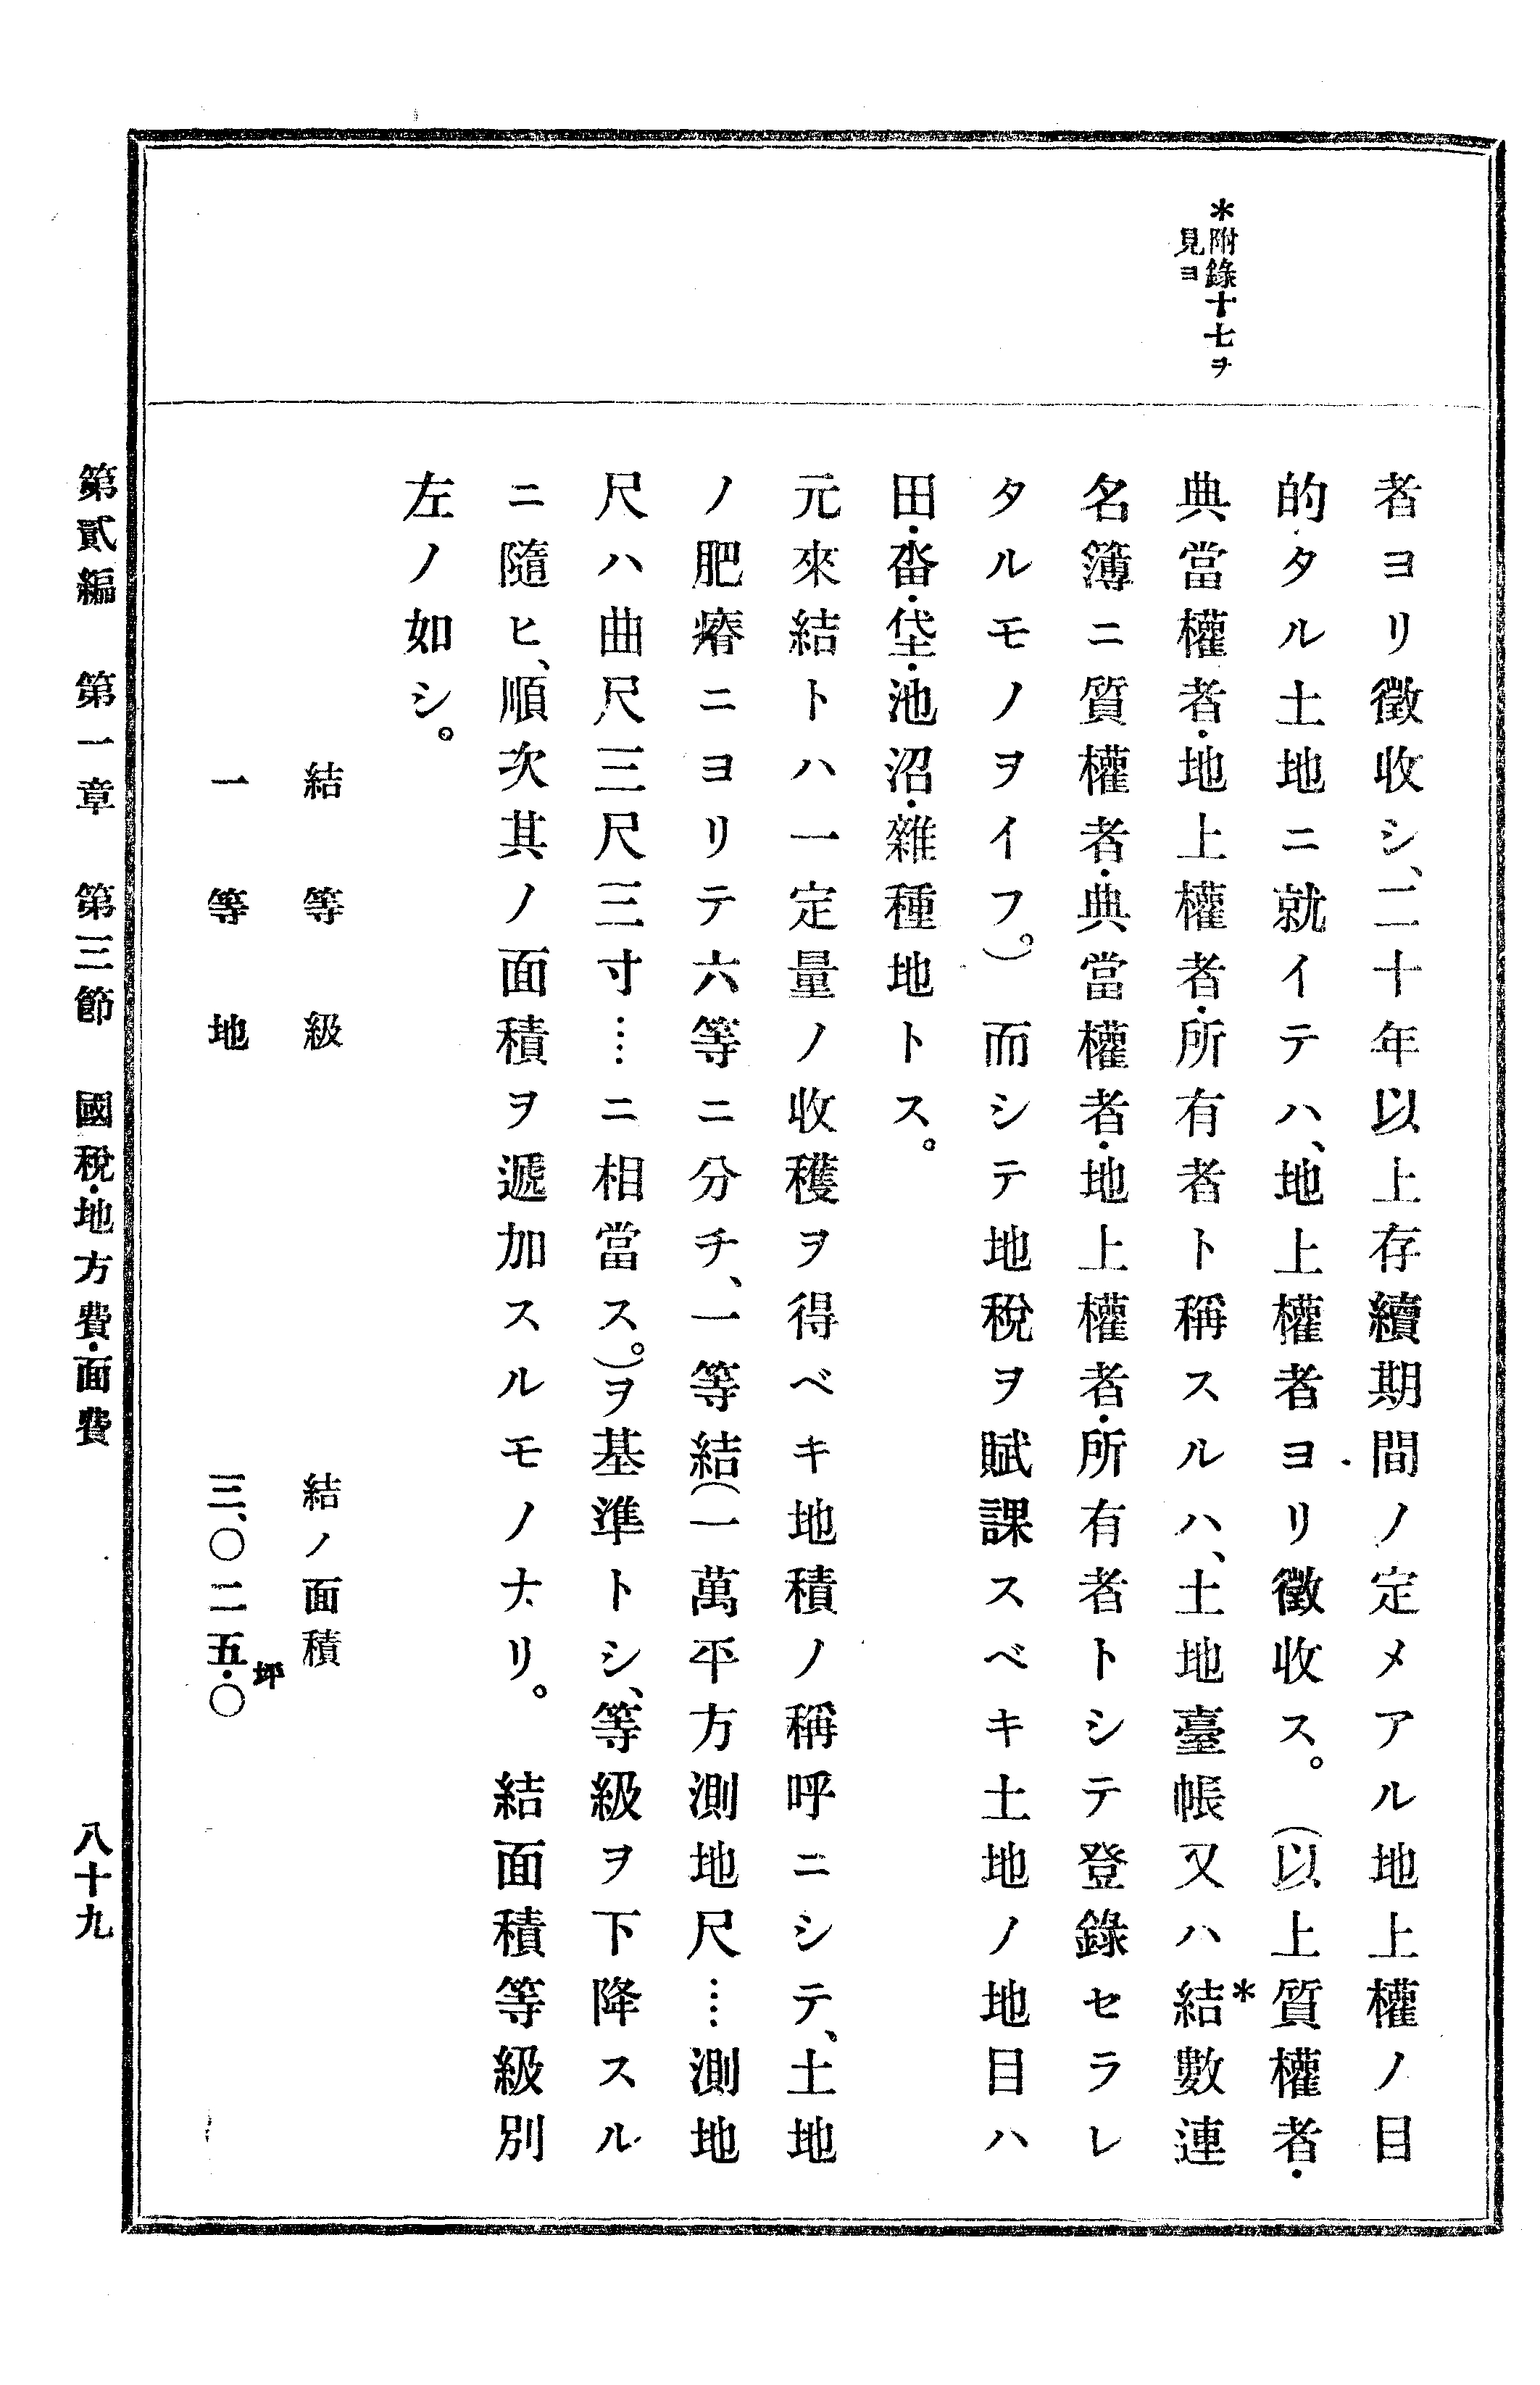 ＊附錄十七ヲ
見ヨ
者ヨリ徵收シ、二十年以上存續期間ノ定メアル地上權ノ目
的タル土地ニ就イテハ、地上權者ヨリ徵收ス。（以上質權者・
典當權者・地上權者・所有者ト稱スルハ、土地臺帳又ハ＊結數連
名簿ニ質權者・典當權者・地上權者・所有者トシテ登錄セラレ
タルモノヲイフ。）而シテ地稅ヲ賦課スベキ土地ノ地目ハ
田・畓・垈・池沼・雜種地トス。
元來結トハ一定量ノ收穫ヲ得ベキ地積ノ稱呼ニシテ、土地
ノ肥瘠ニヨリテ六等ニ分チ、一等結（一萬平方測地尺…測地
尺ハ曲尺三尺三寸…ニ相當ス。）ヲ基準トシ、等級ヲ下降スル
ニ隨ヒ、順次其ノ面積ヲ遞加スルモノナリ。　結面積等級別
左ノ如シ。
結等級　結ノ面積
一等地　三、〇二五・〇坪
第貳編　第一章　第三節　國稅・地方費・面費　八十九